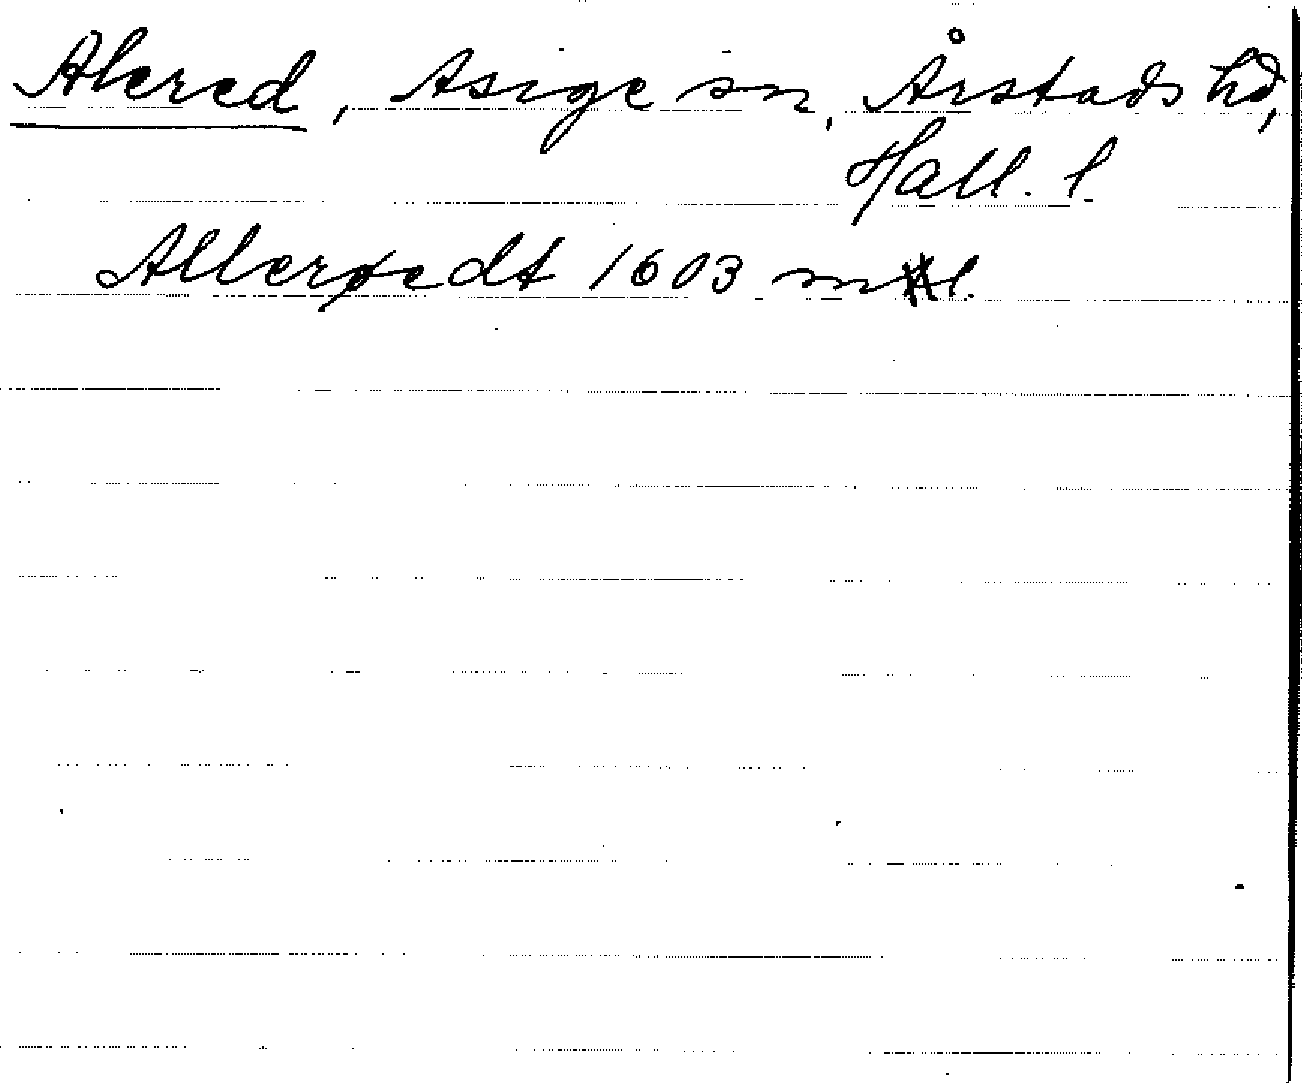 Alered, Asige sn, Årstads hd,
Hall. l.
Allerøedt 1603